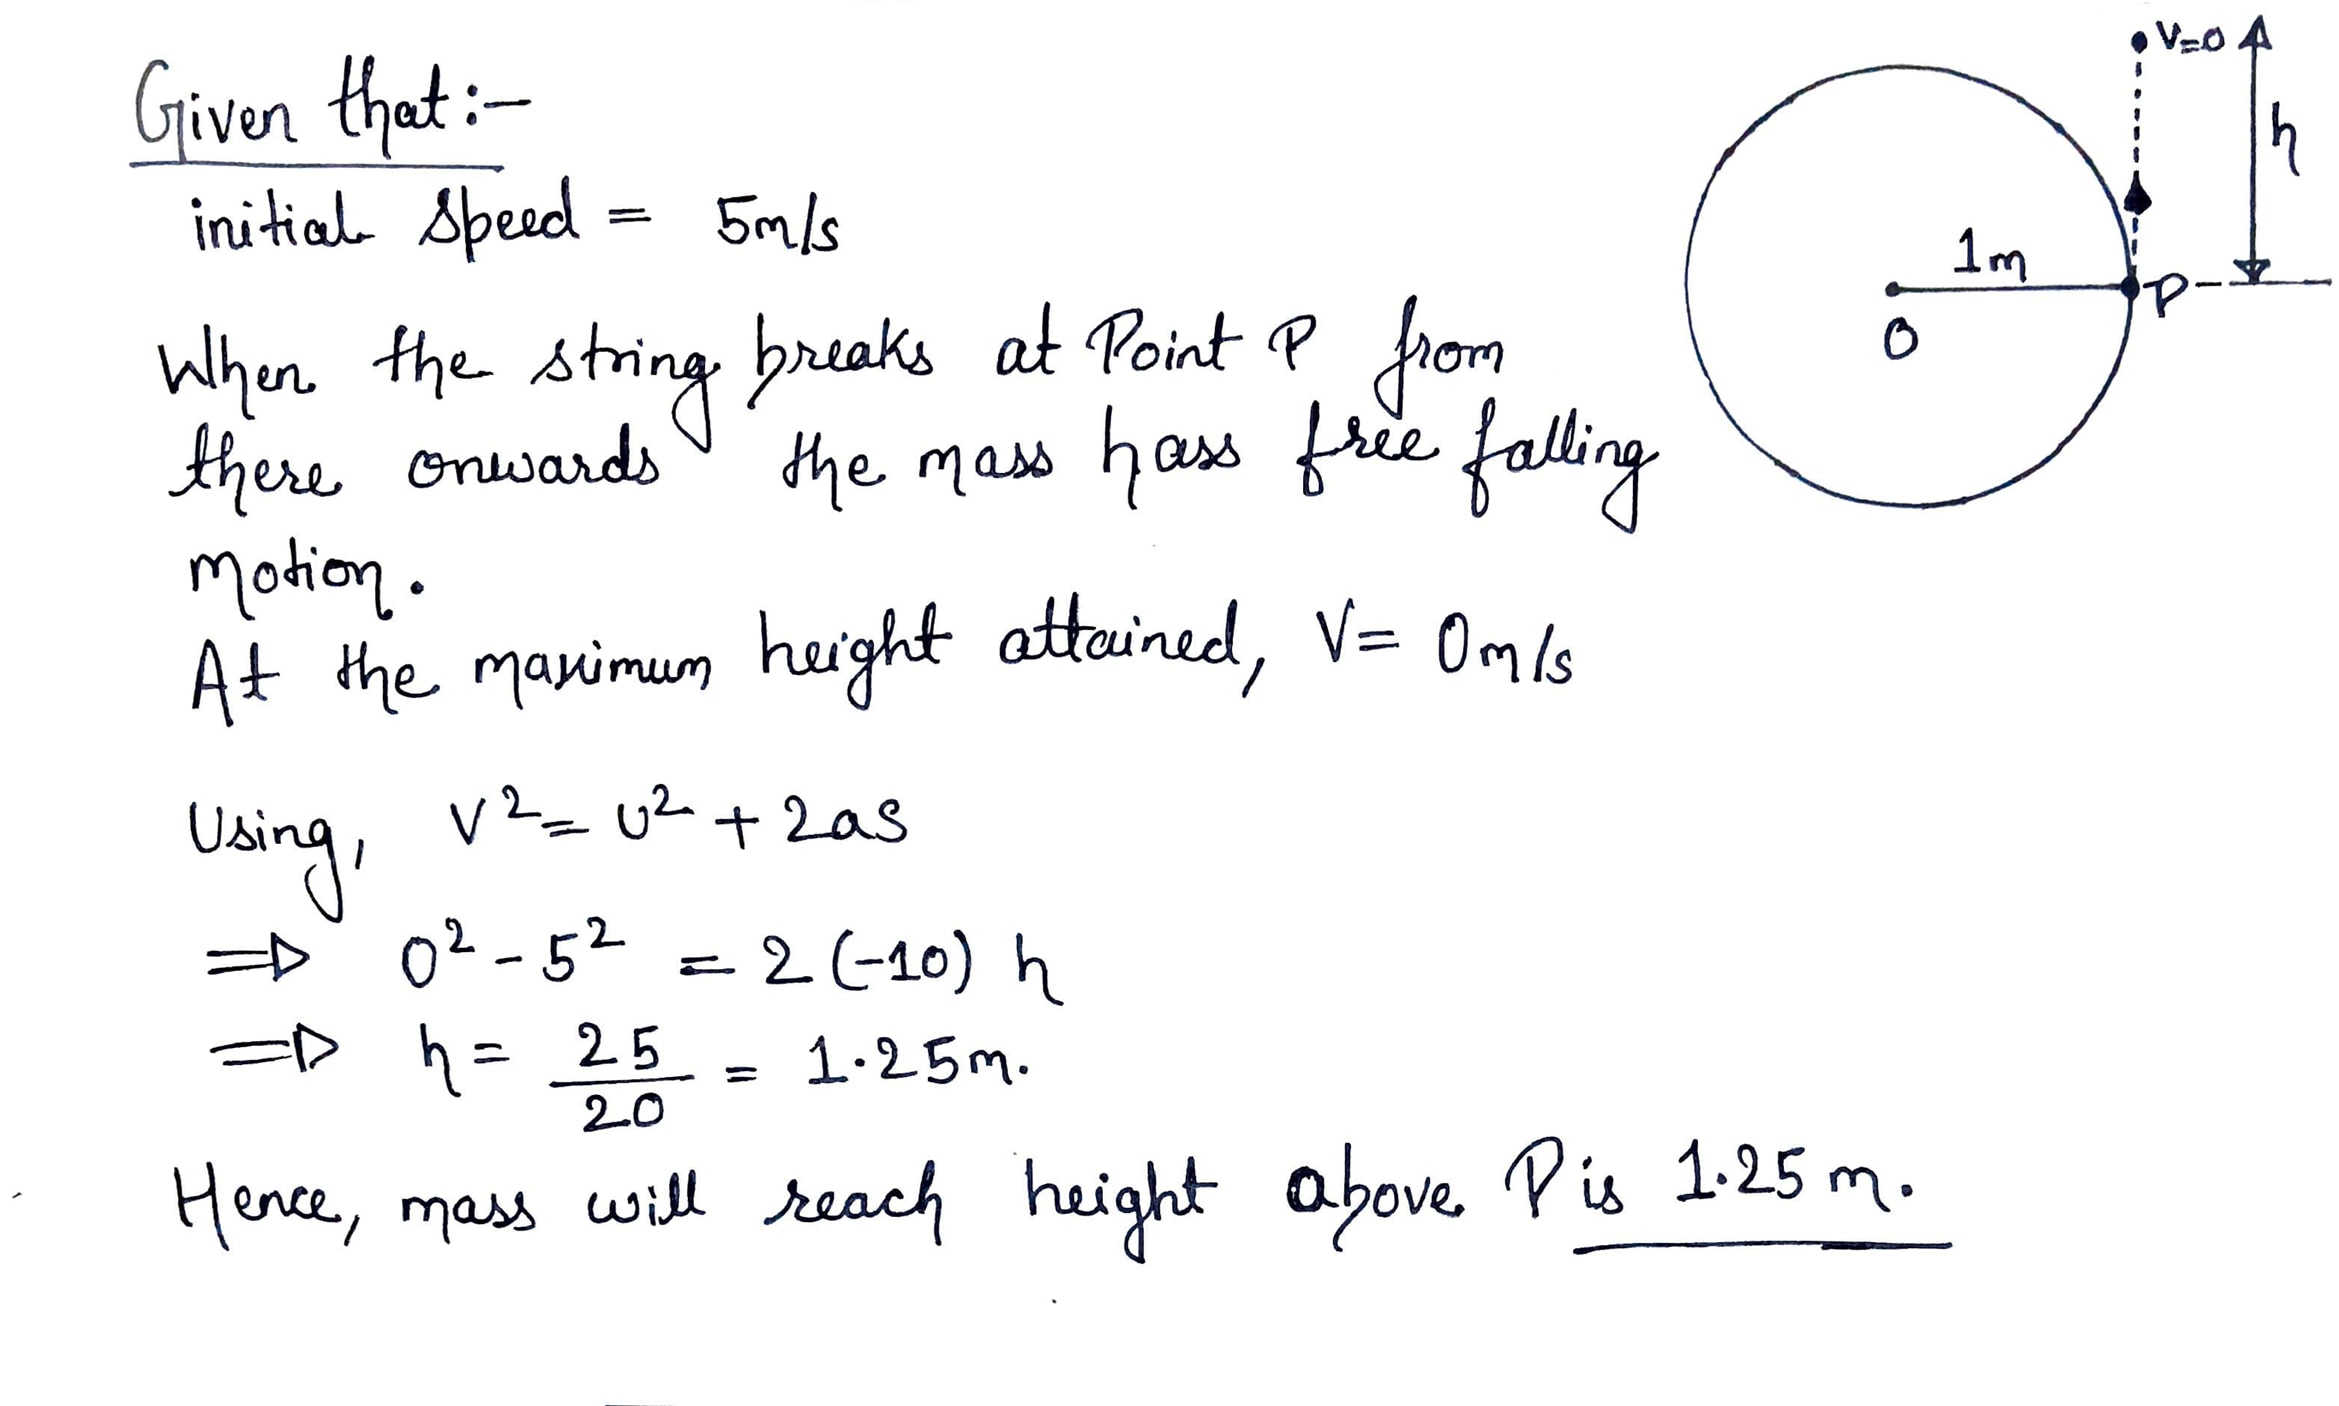 Given that:-
initial speed = 5m/s
When the string breaks at Point P from
there onwards the mass hass free falling
motion.
At the maximum height attained, V= 0m/s
Using, v²= u² + 2as
⇒ 0² - 5² = 2 (-10) h
⇒ h = 25/20 = 1.25m.
Hence, mass will reach height above P is 1.25 m.
V=0
h
1m
P
O